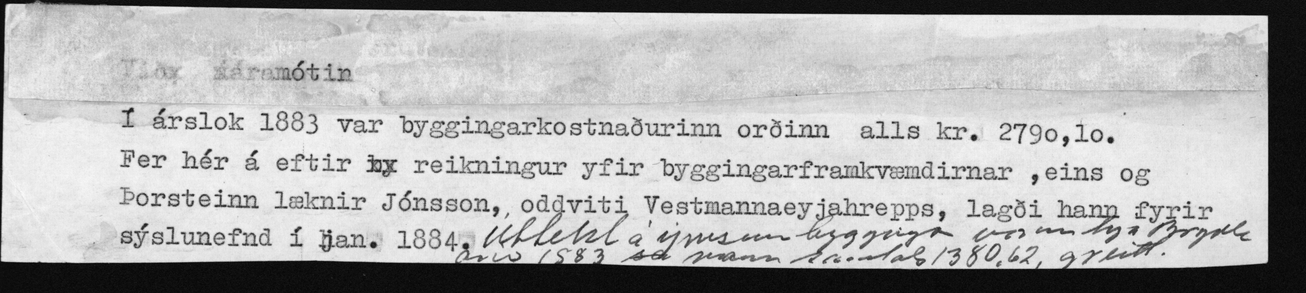 Viðx xáramótin
Í árslok 1883 var byggingarkostnaðurinn orðinn alls kr. 279o,1o.
Fer hér á eftir reikningur yfir byggingarframkvæmdirnar ,eins og
Þorsteinn læknir Jónsson, oddviti Vestmannaeyjahrepps, lagði hann fyrir
sýslunefnd í jan. 1884. Úttekt á ýmsum bygginga vörum hjá Brydes
árið 1883 samtals 1380,62, greitt.